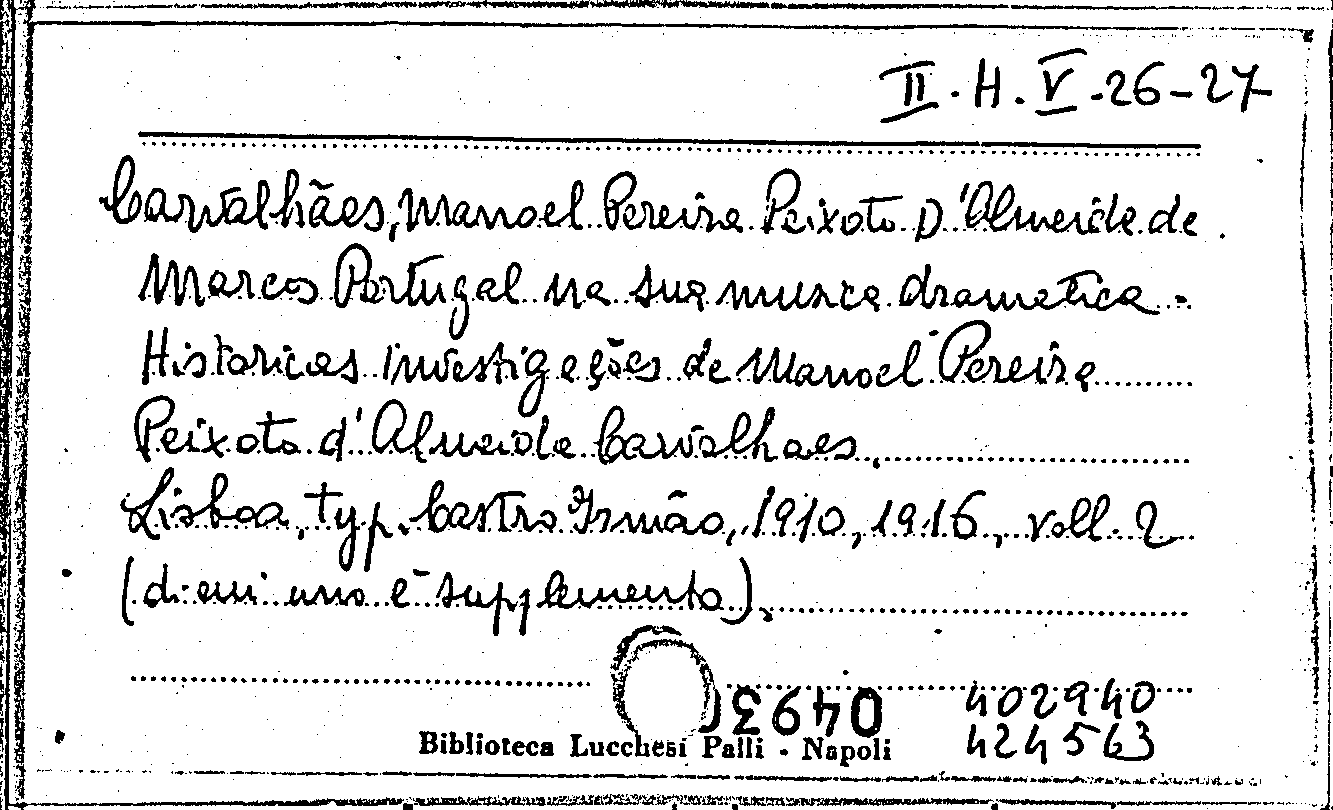 II.H.V.26-27
Carvalhães, Manoel Pereira Peixoto D'Almeida de
Marcos Portugal na sua musica dramatica.
Historicas investigações de Manoel Pereira
Peixoto d'Almeida Carvalhaes.
Lisboa, typ. Castro Irmão, 1910, 1916, voll. 2
(di cui uno è supplemento).
402940
424563
Biblioteca Lucchesi Palli - Napoli